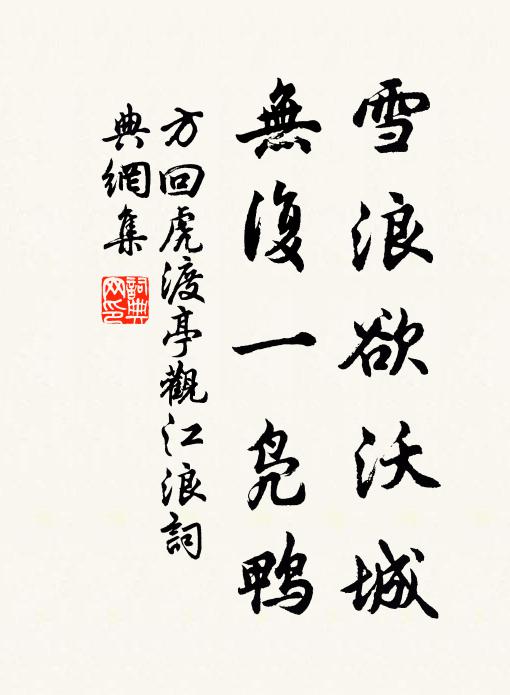 雪浪欲沃城
無復一鳧鴨
方回虎渡亭觀江浪詞
典網集
詞典网印